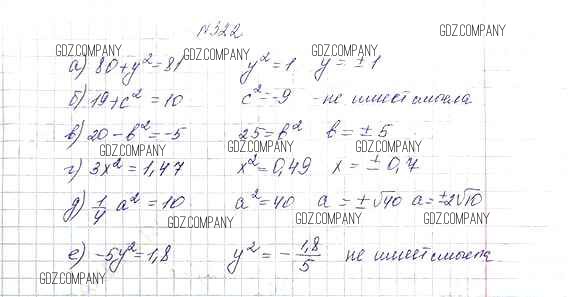 №322
GDZ.COMPANY
GDZ.COMPANY GDZ.COMPANY GDZ.COMPANY
а) 80+y²=81 y²=1 y=±1
б) 19+c²=10 c²=-9 - не имеет смысла
в) 20-b²=-5 25=b² b=±5
GDZ.COMPANY GDZ.COMPANY GDZ.COMPANY
г) 3x²=1,47 x²=0,49 x=±0,7
д) 1/4 a²=10 a²=40 a=±√40 a=±2√10
GDZ.COMPANY GDZ.COMPANY GDZ.COMPANY
е) -5y²=1,8 y²=-1,8/5 не имеет смысла
GDZ.COMPANY